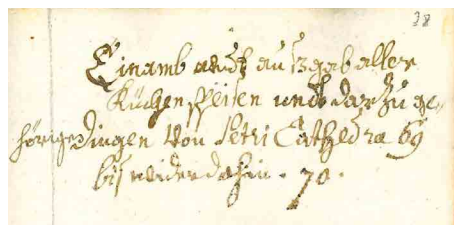 38
Einamb undt auszgab aller
Kuchen Speisen undt darzu ge-
hörige Dingen Von Petri Cathedra 69
bis wider dahin . 70 .